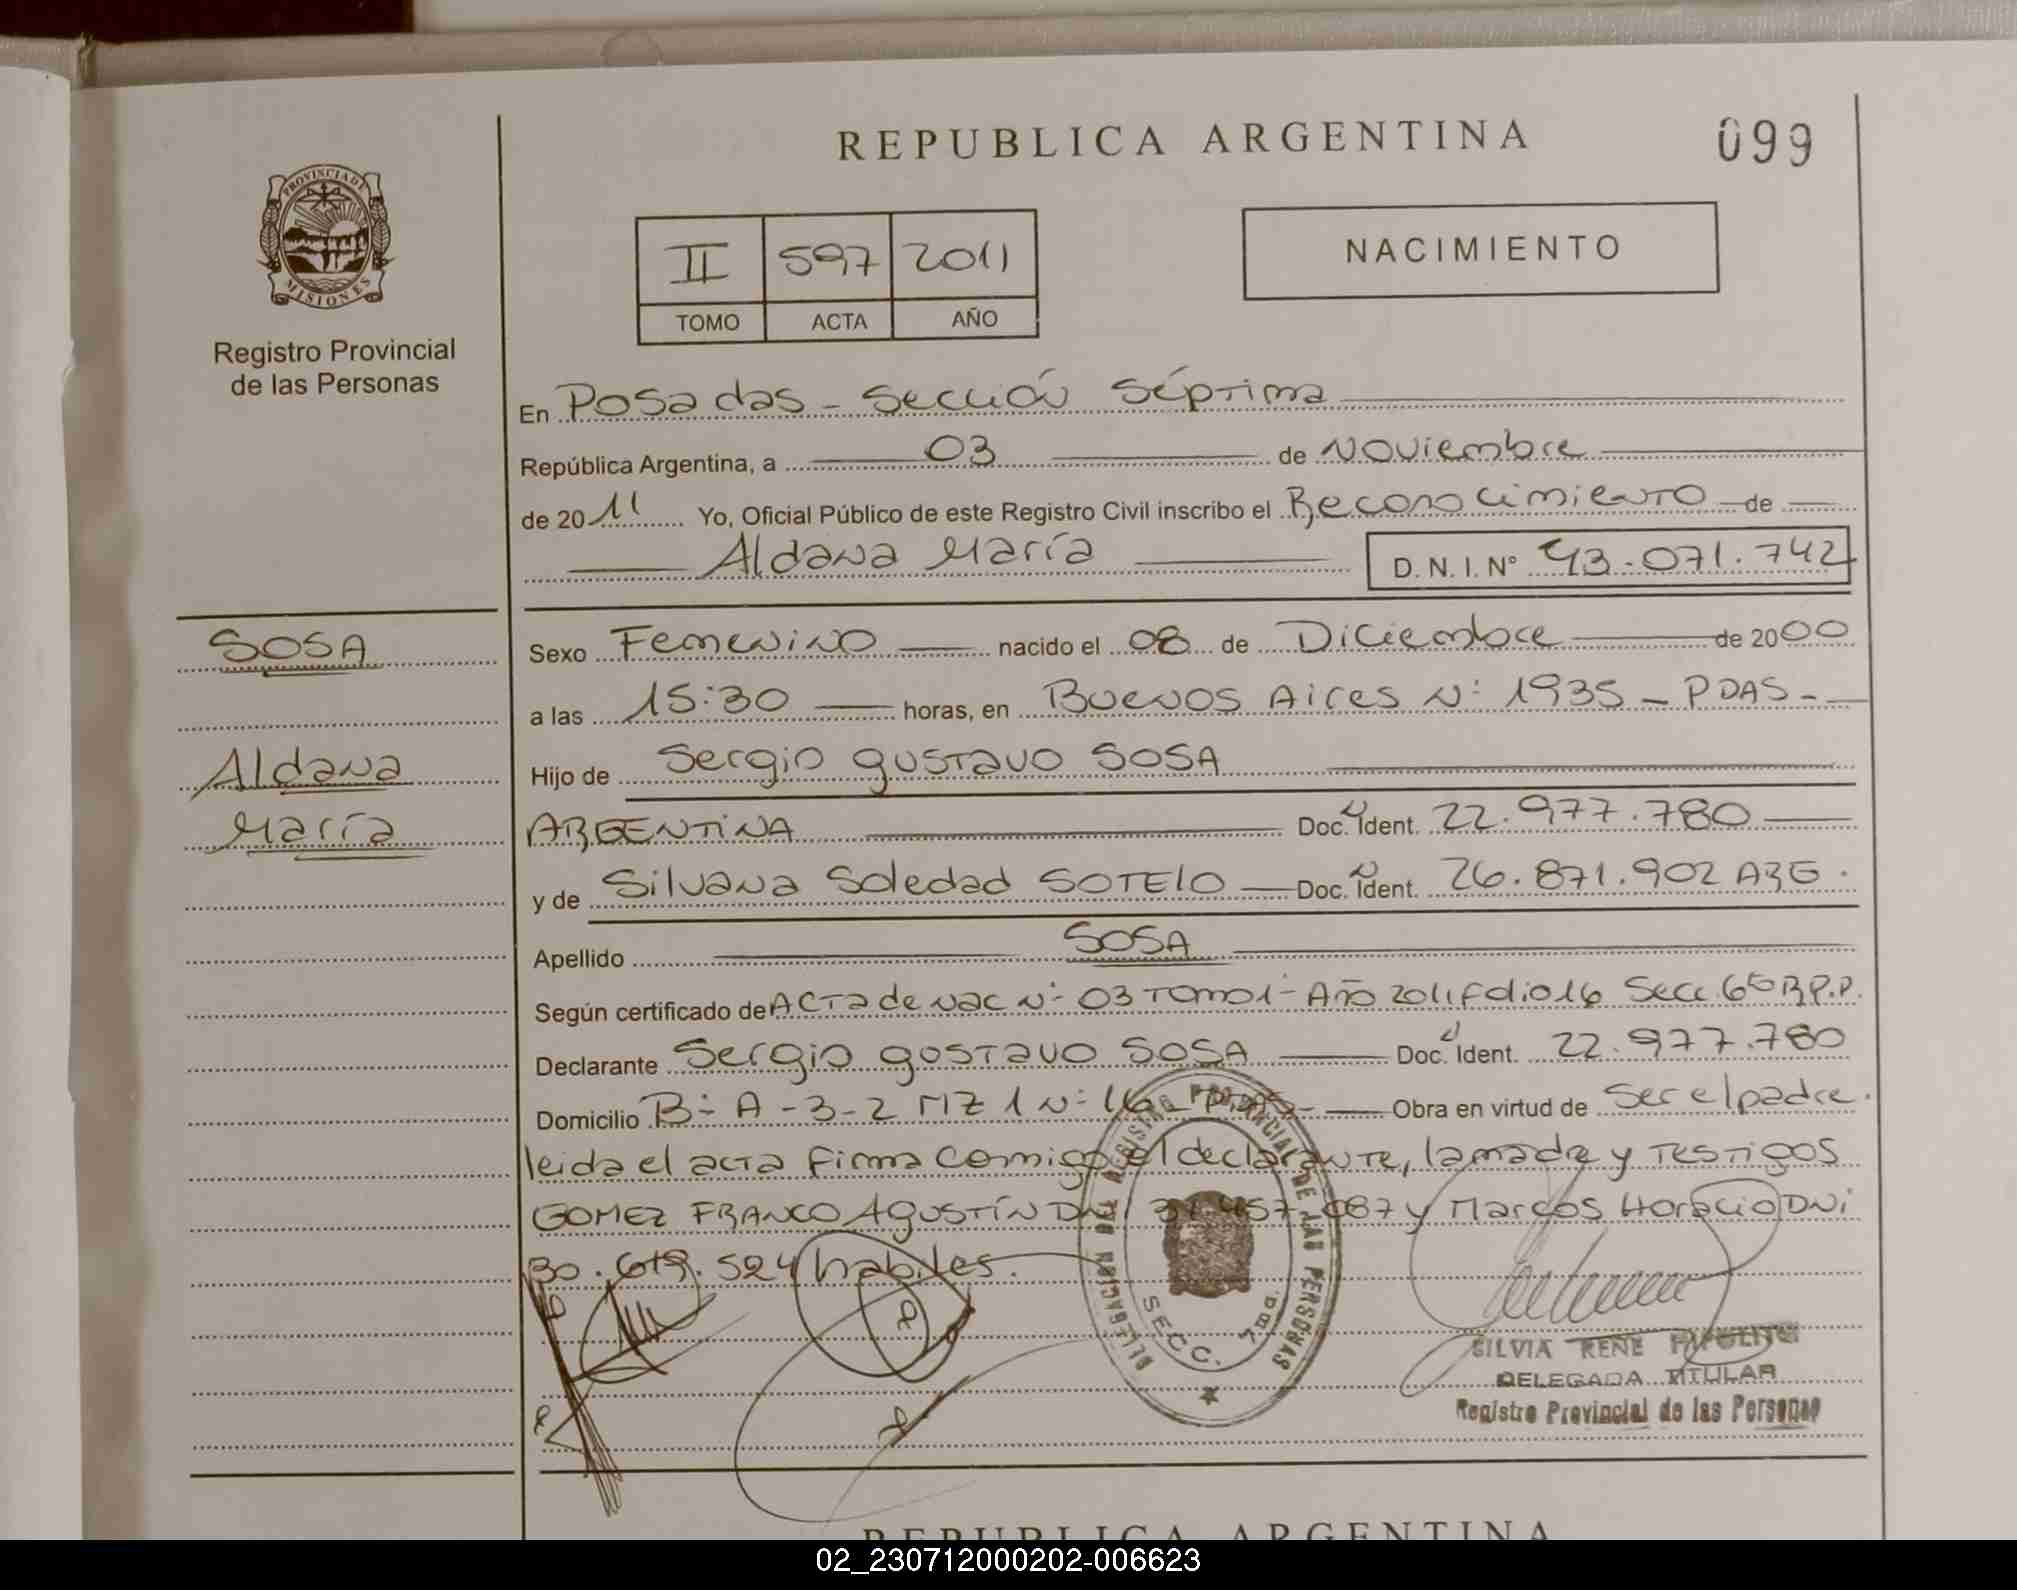 REPUBLICA ARGENTINA
099
PROVINCIA DE MISIONES
Registro Provincial
de las Personas
II 597 2011
TOMO ACTA AÑO
NACIMIENTO
En Posadas - Sección Séptima
República Argentina, a 03 de Noviembre
de 2011 Yo, Oficial Público de este Registro Civil inscribo el Reconocimiento de
Aldana María D.N.I. N° 43.071.742
SOSA
Aldana
María
Sexo Femenino nacido el 08 de Diciembre de 2000
a las 15:30 horas, en Buenos Aires N: 1935 - PDAS -
Hijo de Sergio gustavo SOSA
ARGENTINA Doc. Ident. 22.977.780
y de Silvana Soledad SOTELO Doc. Ident. 26.871.902 ARG.
Apellido SOSA
Según certificado de ACTA de NAC N: 03 TOMO 1 - Año 2011 Folio 16 Secc 6 R.P.P.
Declarante Sergio gustavo SOSA Doc. Ident. 22.977.780
Domicilio B: A-3-2 MZ 1 N: 16 - Obra en virtud de ser el padre.
leida el acta firma conmigo el declarante, la madre y testigos
GOMEZ FRANCO AGUSTÍN DNI 31.457.087 y Marcos Horacio DNI
30.619.524 habiles.
DELEGACION DEL REGISTRO PROVINCIAL DE LAS PERSONAS
SECC. 7ma.
SILVIA RENE
DELEGADA TITULAR
Registro Provincial de las Personas
REPUBLICA ARGENTINA
02_230712000202-006623